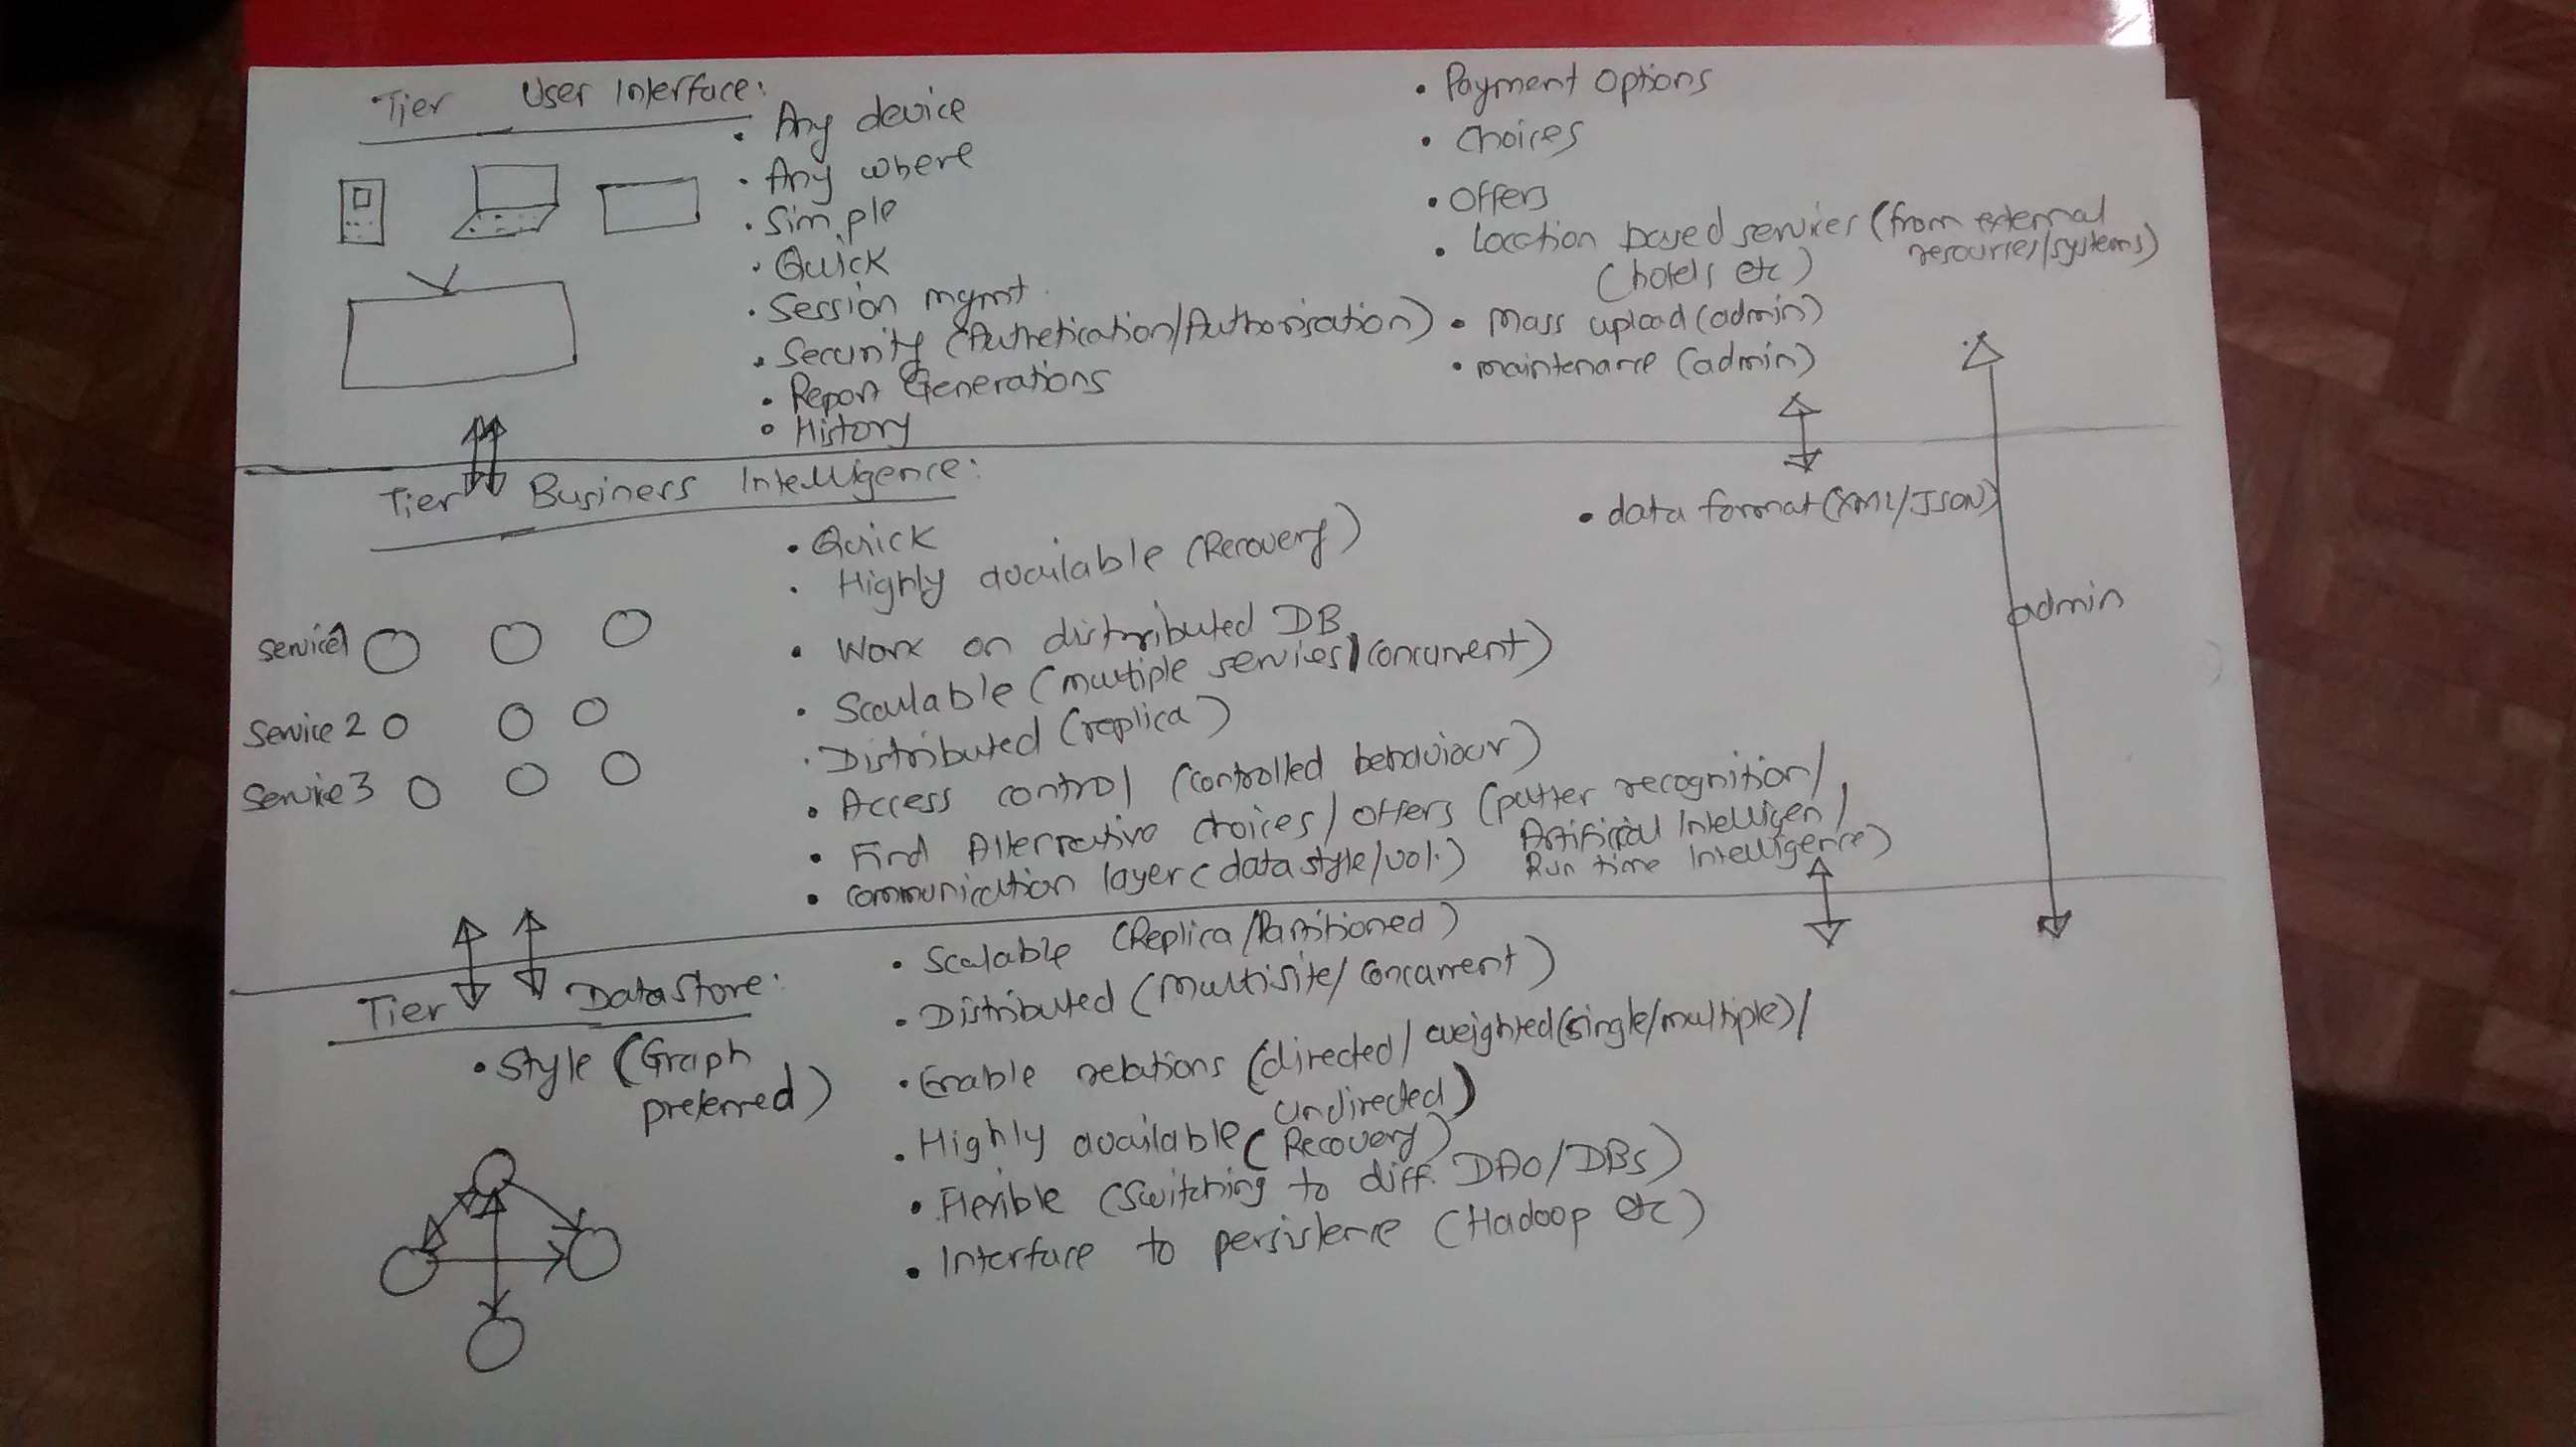 Tier User Interface:
• Any device
• Any where
• Simple
• Quick
• Session mgmt.
• Security (Authetication/Authorisation)
• Report Generations
• History
• Payment Options
• Choices
• Offers
• Location based services (from external
resources/systems)
(hotels etc)
• Mass upload (admin)
• maintenance (admin)
Tier Business Intelligence:
• Quick
• Highly available (Recovery)
• Work on distributed DB
• Scalable (multiple services/concurrent)
• Distributed (replica)
• Access control (controlled behaviour)
• Find Alternative choices/offers (patter recognition/
Artificial Intelligen/
Run time Intelligence)
• Communication layer (data style/vol.)
• data format (XML/JSON)
admin
Service1
Service 2
Service 3
Tier DataStore:
• Style (Graph
preferred)
• Scalable (Replica/Partitioned)
• Distributed (Multisite/Concurrent)
• Enable relations (directed/weighted(single/multiple)/
Undirected)
• Highly available (Recovery)
• Flexible (Switching to diff. DAO/DBs)
• Interface to persistence (Hadoop etc)